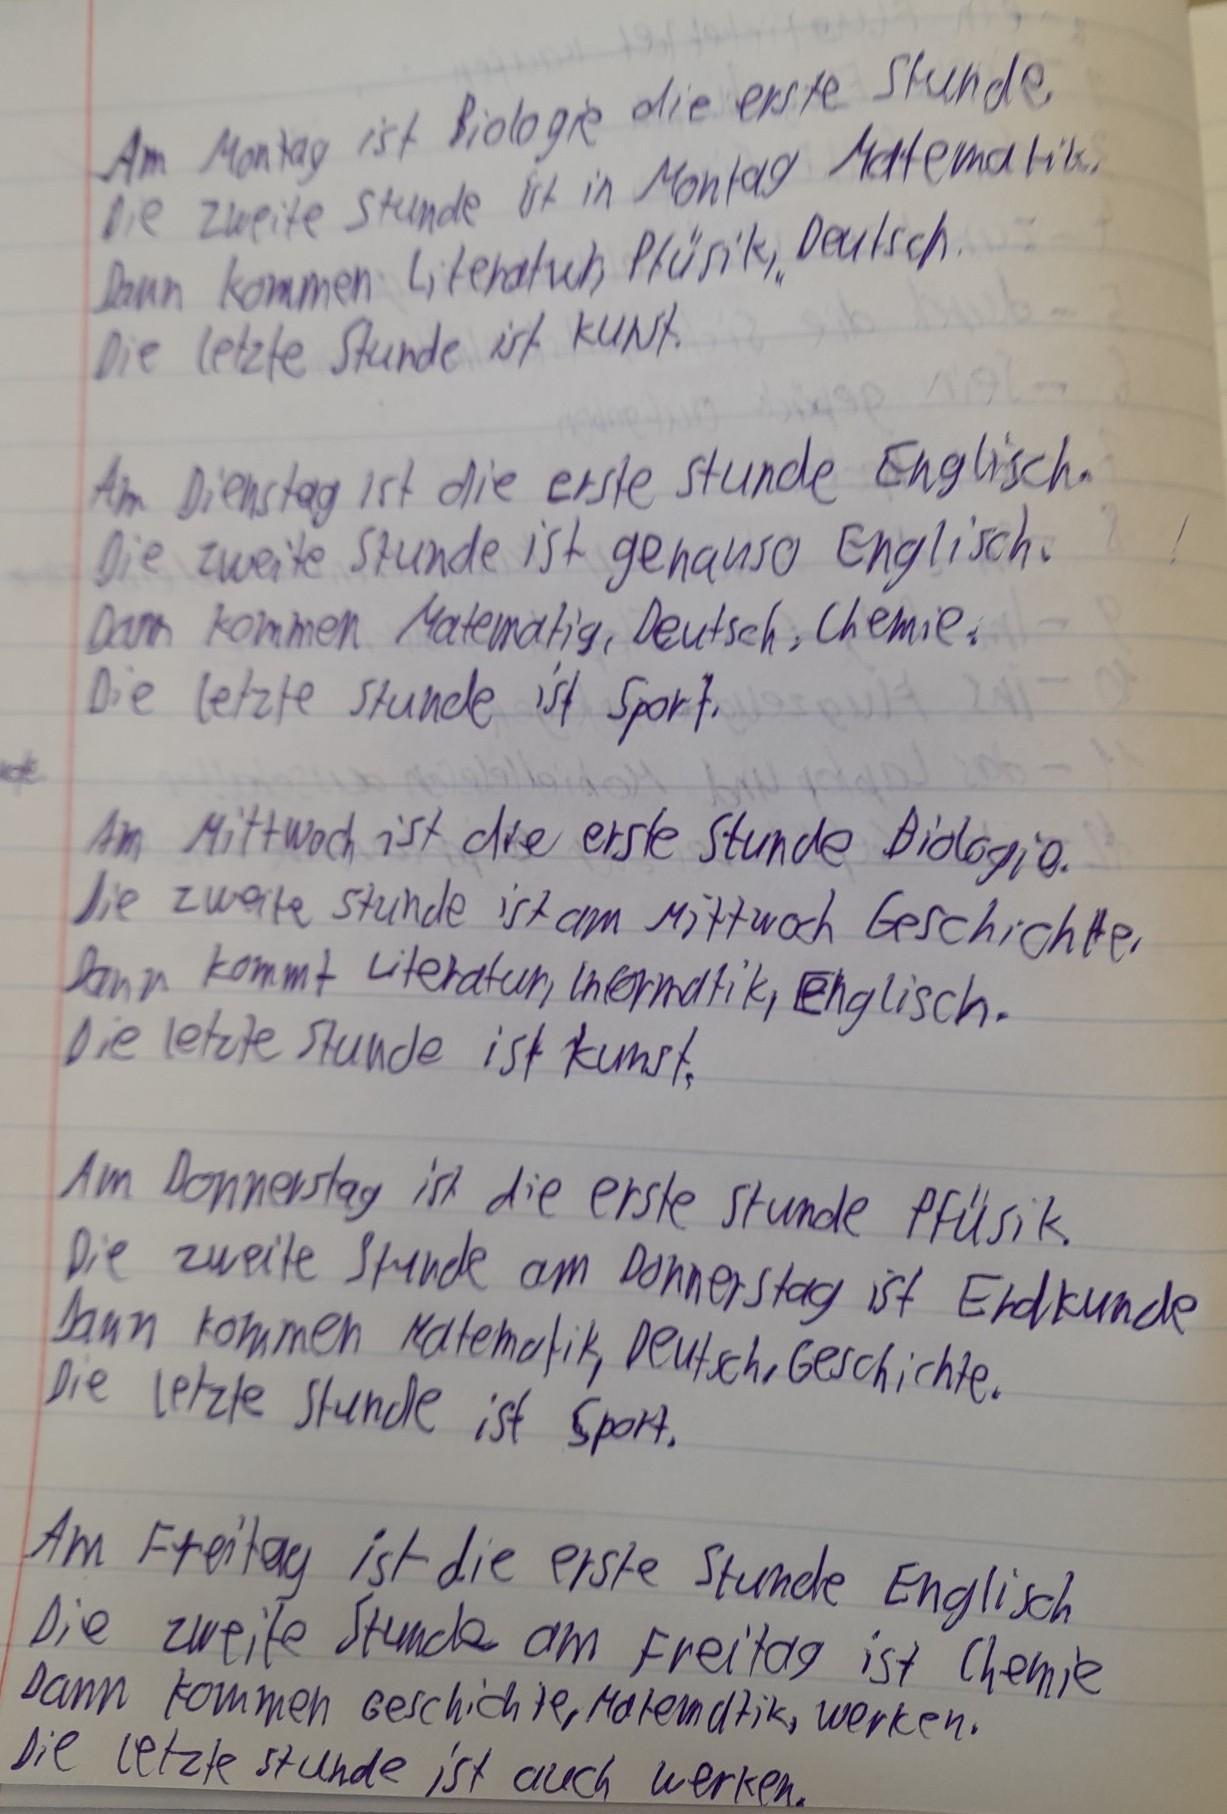 Am Montag ist Biologie die erste Stunde.
Die zweite Stunde ist in Montag Matematik.
Dann kommen Literatur, Pfüsik, Deutsch.
Die letzte Stunde ist Kunst.
Am Dienstag ist die erste Stunde Englisch.
Die zweite Stunde ist genauso Englisch.
Dann kommen Matematig, Deutsch, Chemie.
Die letzte Stunde ist Sport.
Am Mittwoch ist die erste Stunde Biologie.
Die zweite Stunde ist am Mittwoch Geschichte.
Dann kommt Literatur, Informatik, Englisch.
Die letzte Stunde ist Kunst.
Am Donnerstag ist die erste Stunde Pfüsik.
Die zweite Stunde am Donnerstag ist Erdkunde
Dann kommen Matematik, Deutsch, Geschichte.
Die letzte Stunde ist Sport.
Am Freitag ist die erste Stunde Englisch
Die zweite Stunde am Freitag ist Chemie
Dann kommen Geschichte, Matematik, werken.
Die letzte Stunde ist auch werken.